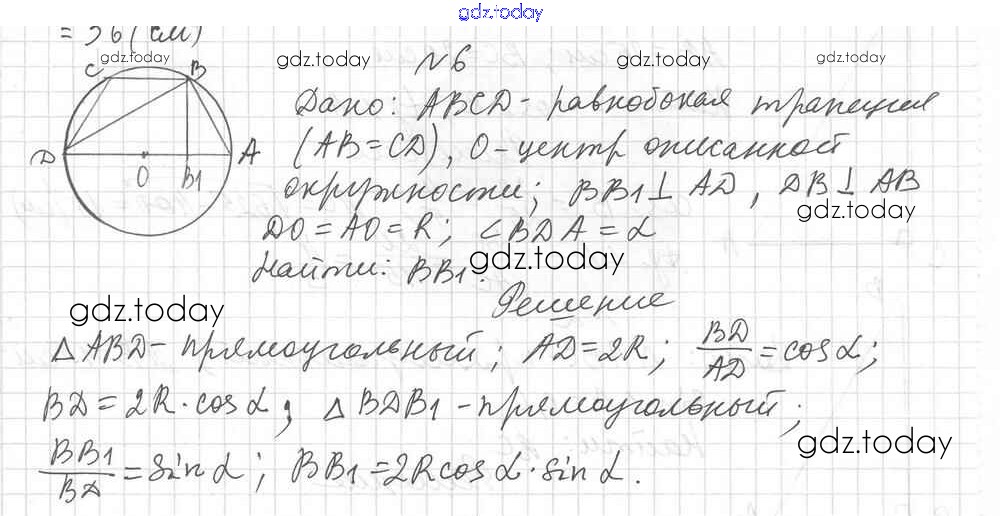 gdz.today
= 36 (см)
gdz.today gdz.today gdz.today gdz.today
N6
C B
D A
O B1
Дано: ABCD - равнобокая трапеция
(AB=CD), O - центр описанной
окружности; BB1 ⊥ AD, DB ⊥ AB
gdz.today
DO = AO = R; ∠BDA = α
Найти: BB1.
gdz.today
Решение
gdz.today
△ABD - прямоугольный; AD = 2R; BD/AD = cos α;
BD = 2R · cos α; △BDB1 - прямоугольный;
gdz.today
BB1/BD = sin α; BB1 = 2R cos α · sin α.